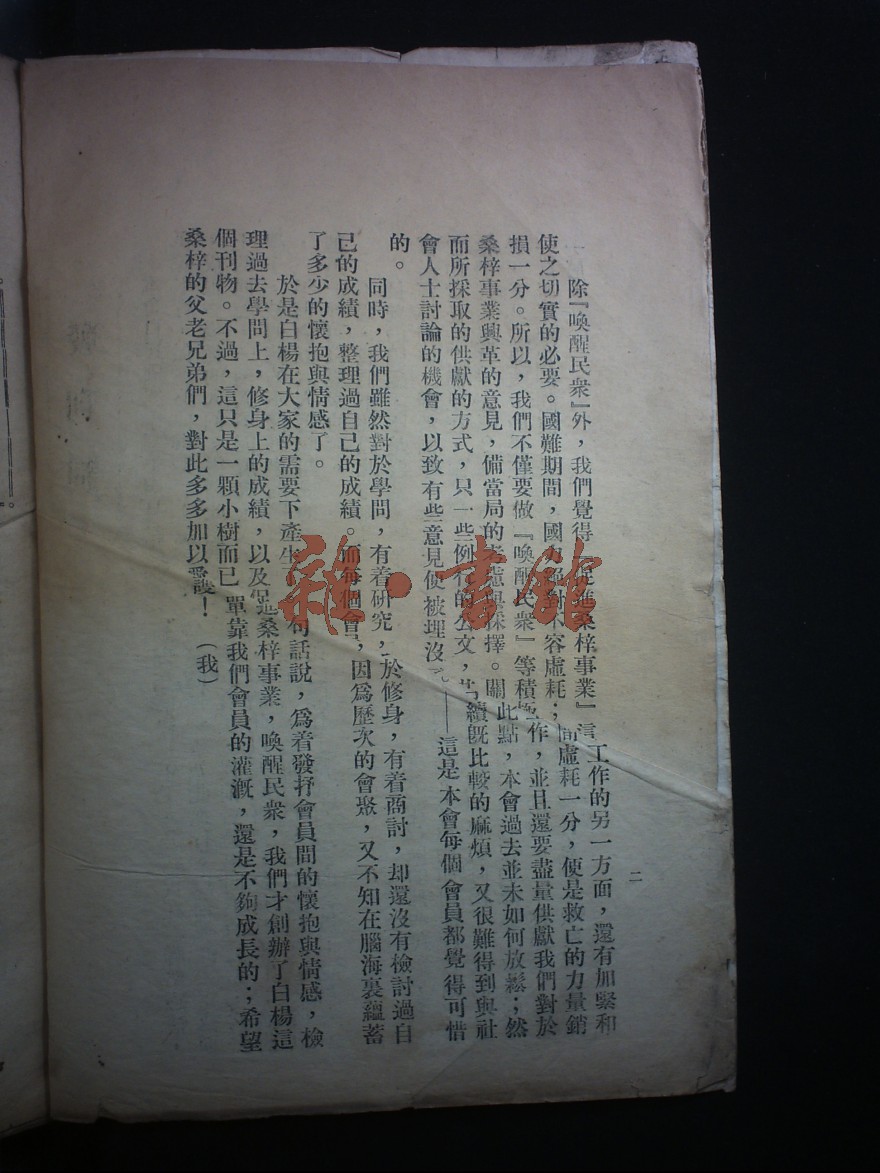 二
除『喚醒民衆』外，我們覺得『促進桑梓事業』工作的另一方面，還有加緊和
使之切實的必要。國難期間，國力絕對不容虛耗；虛耗一分，便是救亡的力量銷
損一分。所以，我們不僅要做『喚醒民衆』等積極工作，並且還要盡量供獻我們對於
桑梓事業興革的意見，備當局的考慮與採擇。關此點，本會過去並未如何放鬆；然
而所採取的供獻的方式，只一些例行的公文，手續旣比較的麻煩，又很難得到與社
會人士討論的機會，以致有些意見便被埋沒了——這是本會每個會員都覺得可惜
的。
同時，我們雖然對於學問，有着研究，於修身，有着商討，却還沒有檢討過自
己的成績，整理過自己的成績。而每個會員，因爲歷次的會聚，又不知在腦海裏蘊蓄
了多少的懷抱與情感了。
於是白楊在大家的需要下產生 句話說，爲着發抒會員間的懷抱與情感，檢
理過去學問上，修身上的成績，以及促進桑梓事業，喚醒民衆，我們才創辦了白楊這
個刊物。不過，這只是一顆小樹而已 單靠我們會員的灌漑，還是不夠成長的；希望
桑梓的父老兄弟們，對此多多加以愛護！ （我）
雜·書館